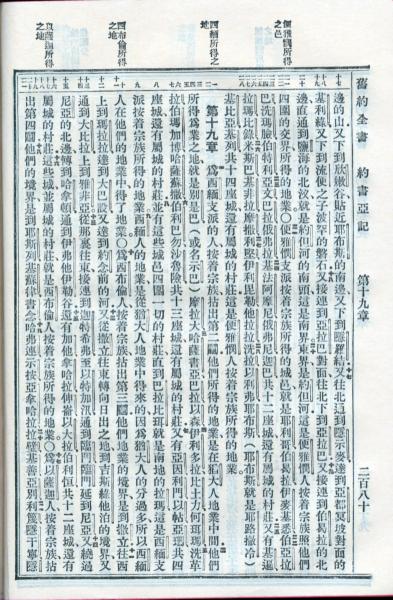 舊約全書　約書亞記　第十九章　二百八十
便雅憫所得之邑
西緬所得之地
西布倫所得之地
以薩迦所得之地
邊的山又下到欣嫩谷貼近耶布斯的南邊又下到隱羅結又往北通到隱示麥達到亞都冥坡對面的
基利綠又下到流便之子波罕的磐石又接連到亞拉巴對面往北下到亞拉巴又接連到伯曷拉的北
邊直通到鹽海的北汊就是約但河的南頭這是南界東界是約但河這是便雅憫人按着宗族照他們
四圍的交界所得的地業〇便雅憫支派按着宗族所得的城邑就是耶利哥伯曷拉伊麥基悉伯亞拉
巴洗瑪臉伯特利亞文巴拉俄弗拉基法阿摩尼俄弗尼迦巴共十二座城還有屬城的村莊又有基遍
拉瑪比錄米斯巴基非拉摩撒利堅伊利毘勒他拉拉洗拉以利弗耶布斯(耶布斯就是耶路撒冷)
基比亞基列共十四座城還有屬城的村莊這是便雅憫人按着宗族所得的地業
第十九章　爲西緬支派的人按着宗族拈出第二鬮他們所得的地業是在猶大人地業中間他們
所得爲業之地就是別是巴(或名示巴)摩拉大哈薩書亞巴拉以森伊利多拉比土力何珥瑪洗革
拉伯瑪加博哈薩蘇撒伯利巴勿沙魯險共十三座城還有屬城的村莊又有亞因利門以帖亞珊共四
座城還有屬城的村莊並有這些城邑四圍一切的村莊直到巴拉比珥就是南地的拉瑪這是西緬支
派按着宗族所得的地業西緬人的地業是從猶大人地業中得來的因爲猶大人的分過多所以西緬
人在他們的地業中得了地業〇爲西布倫人按着宗族拈出第三鬮他們地業的境界是到撒立往西
上到瑪拉拉達到大巴設又達到約念前的河又從撒立往東轉向日出之地到吉斯綠他泊的境界又
通到大比拉上到雅非亞從那裏往東接連到迦特希弗至以特加汛通到臨門臨門延到尼亞又繞過
尼亞的北邊轉到哈拿頓通到伊弗他伊勒谷還有加他拿哈拉伸崙以大拉伯利恆共十二座城還有
屬城的村莊這些城並屬城的村莊就是西布倫人按着宗族所得的地業〇爲以薩迦人按着宗族拈
出第四鬮他們的境界是到耶斯列基蘇律書念哈弗連示按亞拿哈拉拉璧基善亞別利篾隱干寧隱